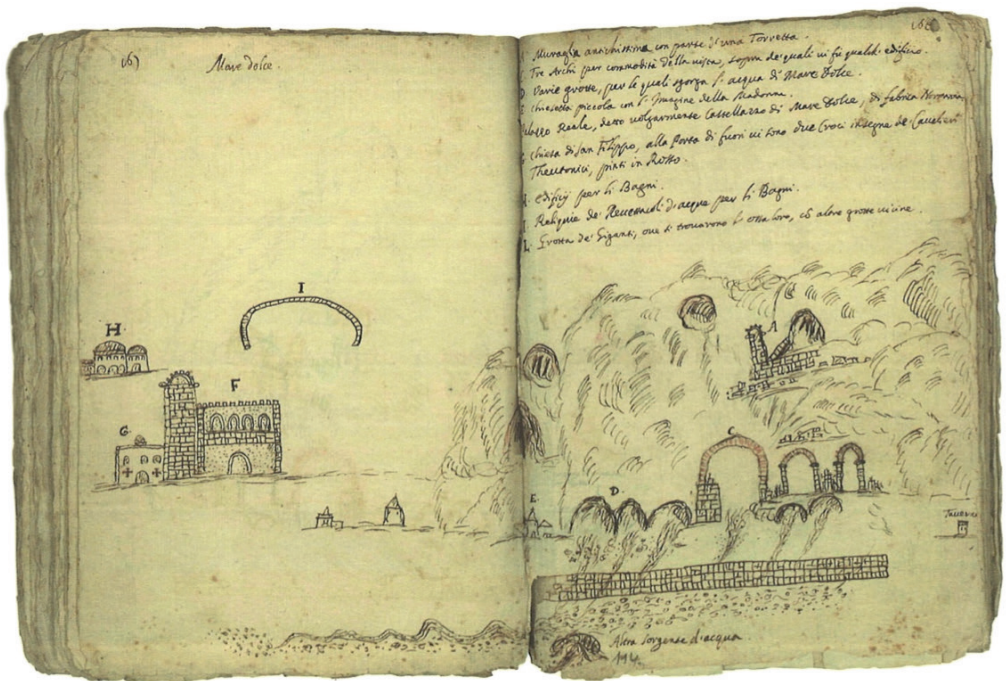 167
Mare dolce.
I
H
F
G
166
Muraglia antichissima con parte di una Torretta.
Tre Archi per commodità della uista, sopra de' quali ui fù qualche edificio.
D Varie grotte, per le quali sgorga l' acqua di Mare Dolce.
E Chiesetta piccola con l' Imagine della Madonna.
Palazzo Reale, detto volgarmente Castellazzo di Mare Dolce, di fabrica
G Chiesa di San Filippo, alla Porta di fuori ui sono due Croci insegne de' Cavalieri
Theutonici, pinti in Rosso.
H edificij per li Bagni.
I Reliquie de' d'acqua per li Bagni.
L Grotta de' Giganti, oue si trouarono l' ossa loro, cõ altre grotte uicine.
A
C
D
E
Altra sorgente d'acqua
194.